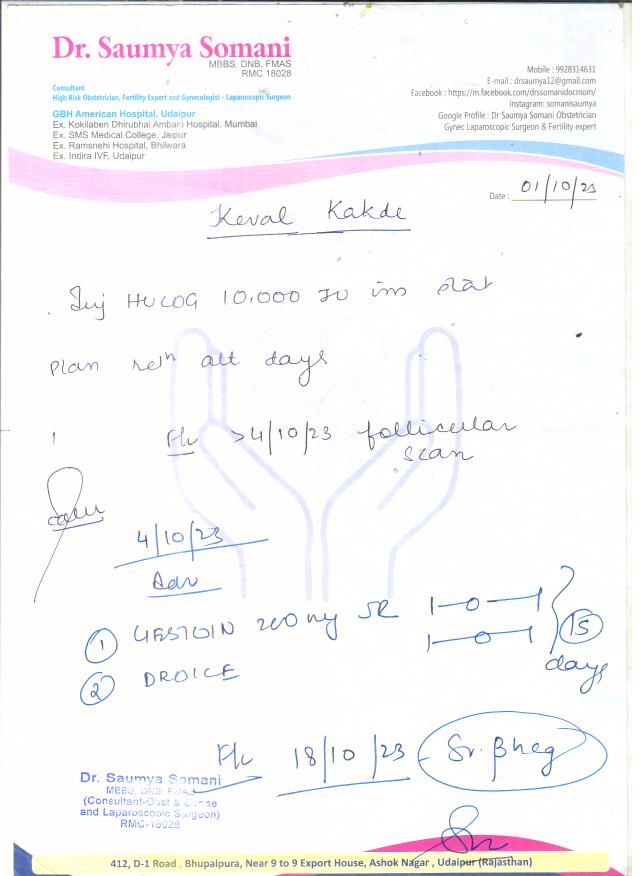 Dr. Saumya Somani
MBBS, DNB, FMAS
RMC 18028
Consultant
High Risk Obstetrician, Fertility Expert and Gynecologist - Laparoscopic Surgeon
GBH American Hospital, Udaipur
Ex. Kokilaben Dhirubhai Ambani Hospital, Mumbai
Ex. SMS Medical College, Jaipur
Ex. Ramsnehi Hospital, Bhilwara
Ex. Indira IVF, Udaipur
Mobile : 9928314631
E-mail : drsaumya12@gmail.com
Facebook : https://m.facebook.com/drssomanidocmom/
Instagram: somanisaumya
Google Profile : Dr Saumya Somani Obstetrician
Gynec Laparoscopic Surgeon & Fertility expert
Date : 01/10/23
Keval Kakde
Inj HUCOG 10,000 IU im stat
Plan reln alt days
F/u > 4/10/23 follicular
scan
4/10/23
Adv
1 GESTOIN 200 mg SR 1-0-1
2 DROICE 1-0-1
15
days
F/u 18/10/23 - Sr. βhcg
Dr. Saumya Somani
MBBS, DNB, FMAS
(Consultant-Obst & Gynae
and Laparoscopic Surgeon)
RMC-18028
412, D-1 Road , Bhupalpura, Near 9 to 9 Export House, Ashok Nagar , Udaipur (Rajasthan)